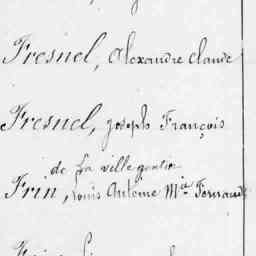 Fresnel, Alexandre Claude
Fresnel, Joseph François
de la ville gontier
Frin, Louis Antoine Mie Fernand